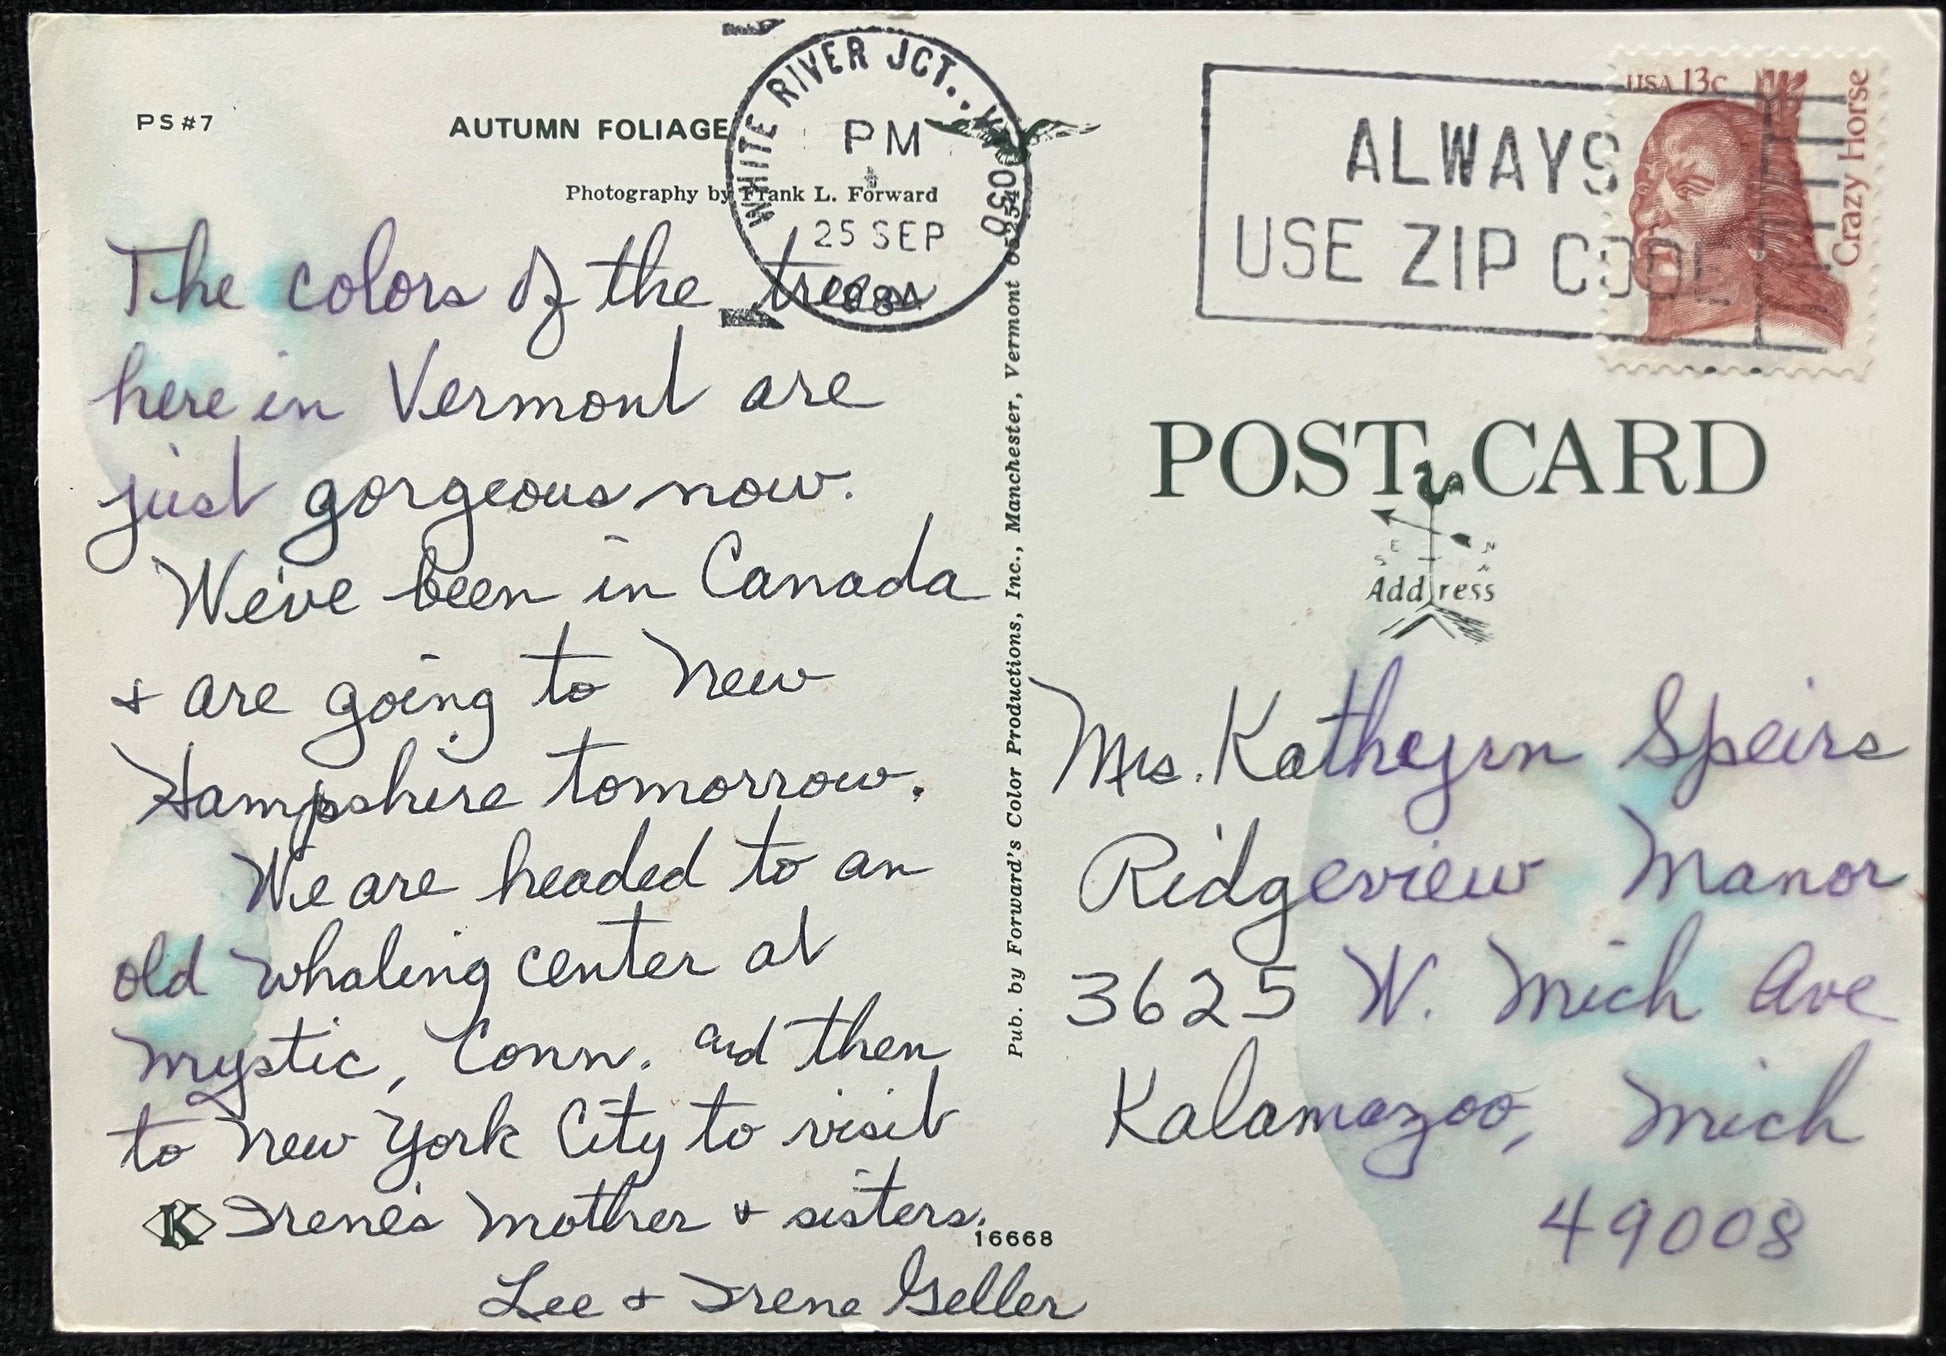 PS#7
AUTUMN FOLIAGE
Photography by Frank L. Forward
The colors of the trees
here in Vermont are
just gorgeous now.
We've been in Canada
+ are going to New
Hampshire tomorrow.
We are headed to an
old whaling center at
Mystic, Conn. and then
to New York City to visit
Irene's Mother + sisters.
Lee + Irene Geller
K
16668
Pub. by Forward's Color Productions, Inc., Manchester, Vermont
WHITE RIVER JCT., V
PM
25 SEP
ALWAYS
USE ZIP CODE
USA 13c
Crazy Horse
POST CARD
E N
S W
Address
Mrs. Katheyrn Speirs
Ridgeview Manor
3625 W. Mich Ave
Kalamazoo, Mich
49008